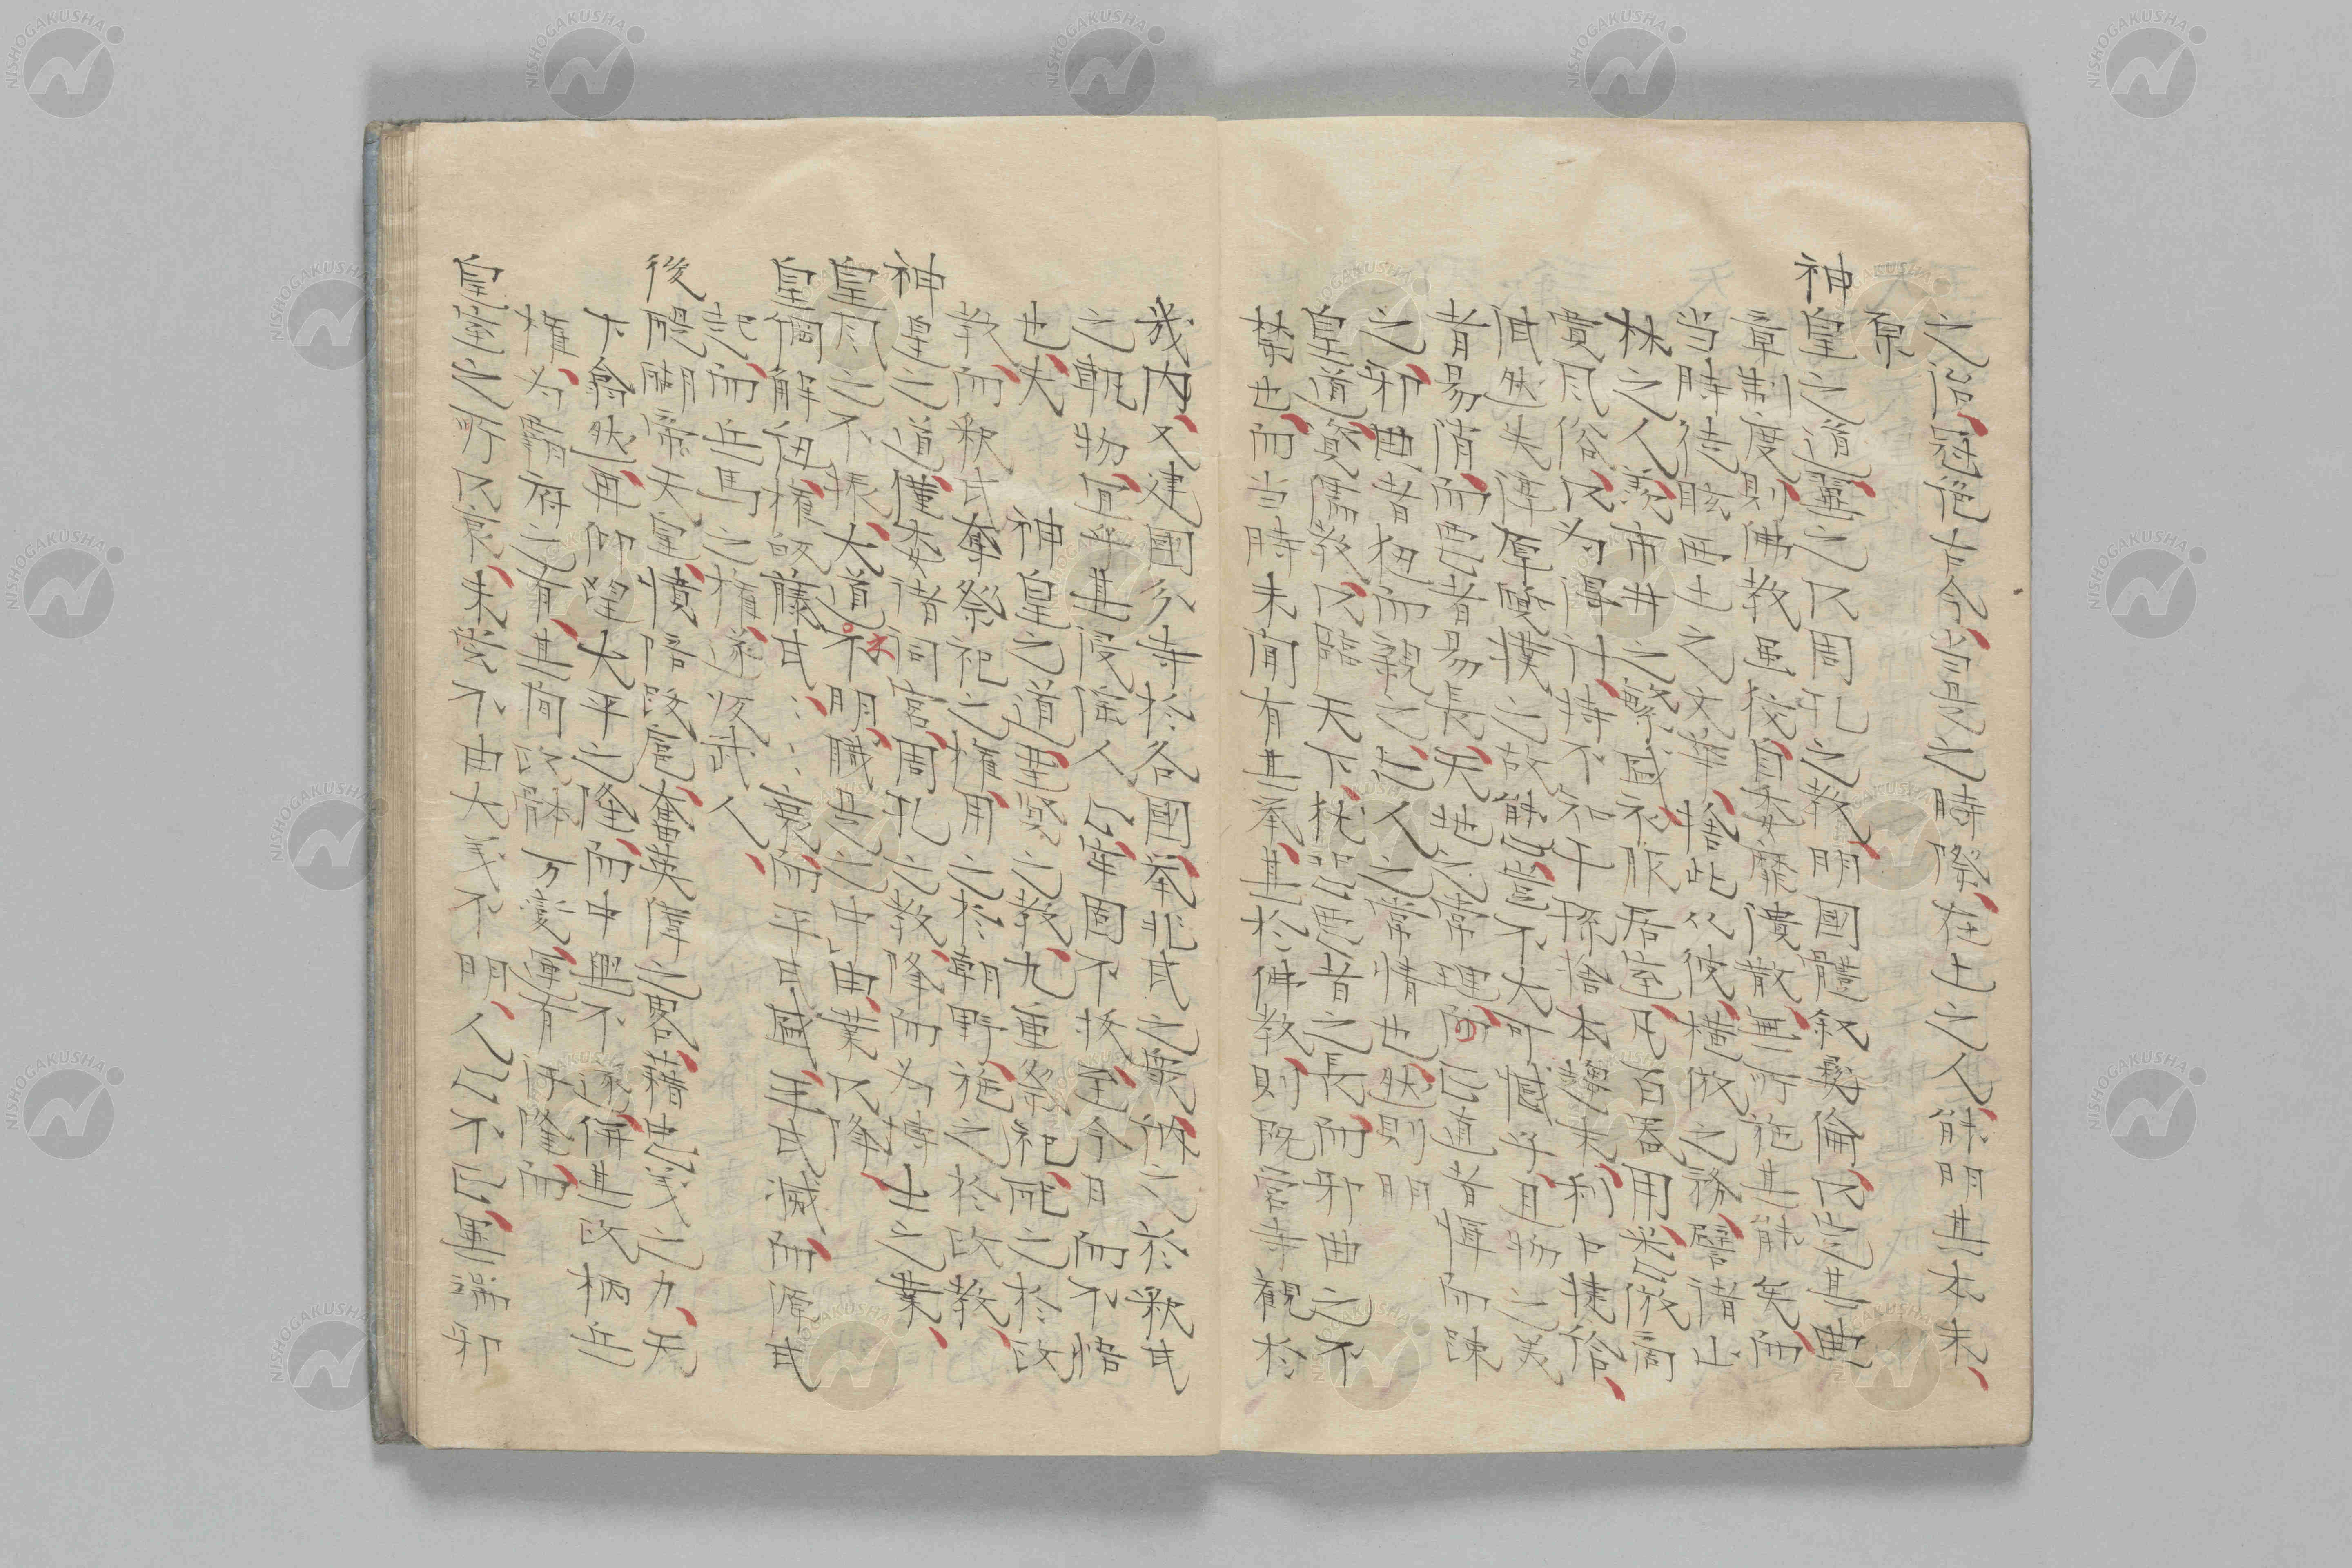 之徒冠絶古今当是之時際在上之人能明其本末
原
神皇之道翼之以周孔之教明國體叙彜倫以定其典
章制度則佛教虽狡自委靡潰散無所施其能矣而
当時徒眩西土之文華捨此以彼模倣之務譬諸山
林之人羨市井之繁盛衣服居室凡百器用悉倣商
賈風俗以為得計特不知干孫捨本趨末利口捷給
佻然失渾厚質樸之故態豈不大可憾乎且物之美
者易消而悪者易長天地之常理而正直者憚而踈
之邪曲者狃而親之亡人之常情也然則明
皇道資儒教以臨天下枕恐悪者之長而邪曲之不
禁也而当時未聞有其奉其於佛教則既宮寺観於
畿内又建國分寺於各國奉兆民之衆依之於釈氏
之軌物宜乎其浸淫人心牢固不拔至今日而不悟
也夫 神皇之道聖賢之教九重祭祀酡之於政
教而釈氏奪祭祀之権用之於朝野施之於政教
神皇之道僅委諸祠宮周孔之教降而为博士之業
皇風之不振大道之不明職是之由葉以降
皇綱解紐権啟藤氏〻〻衰而平氏盛平氏滅而源氏
起而兵馬之権遂汲武人
後醍醐帝天皇憤陪政寇奮英偉之略藉忠義之力天
下翕然再仰望大平之隆而中興不遂併其政柄兵
権为覇府之有其间政體万變運有汙隆而
皇室之所以衰未嘗不由大義不明人心不正運端邪